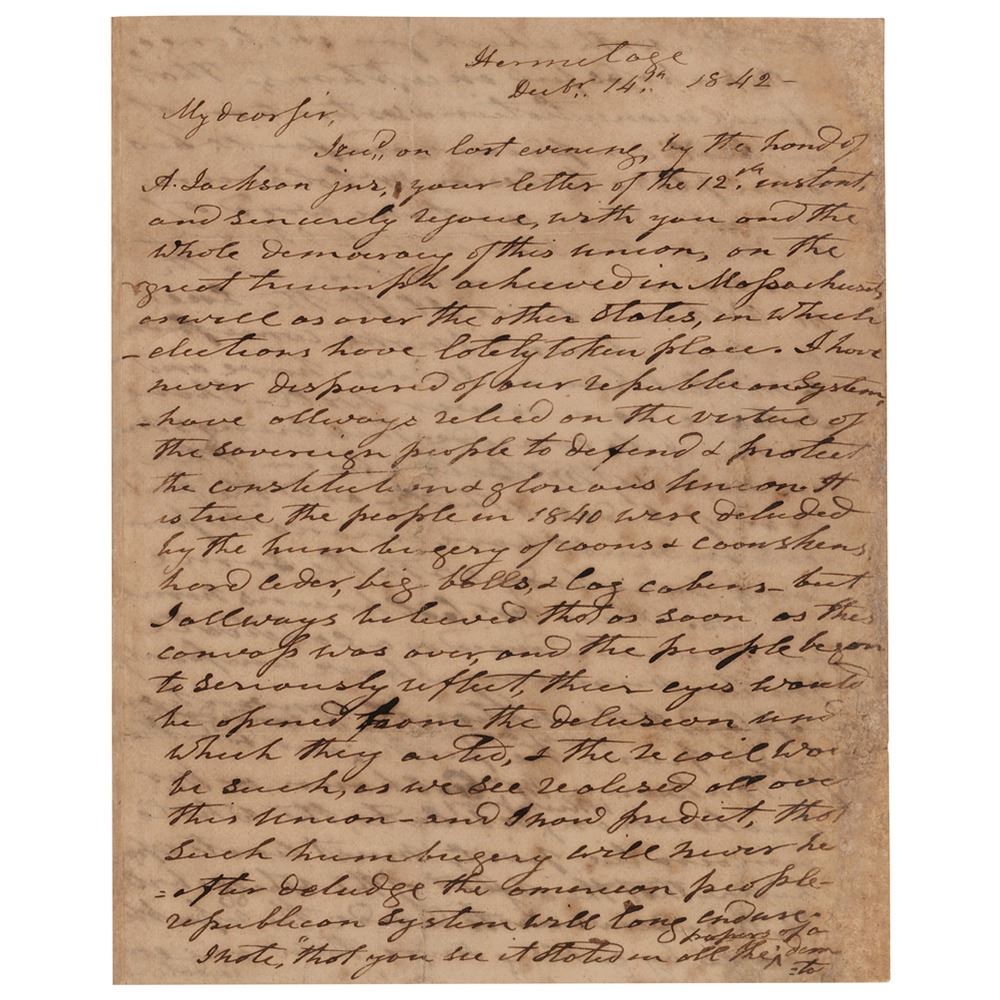 Hermitage
Decbr. 14th. 1842—
My dear sir,
I recd. on last evening, by the hand of
A. Jackson jnr, your letter of the 12th. instant,
and sincerely rejoice, with you and the
whole democracy of this union, on the
great triumph achieved in Massachusetts
as well as over the other States, in which
elections have lately taken place. I have
never despaired of our republican system,
have allways relied on the virtue of
the sovereign people to defend & protect
the constitution & glorious union. It
is true the people in 1840 were deluded
by the humbugery of coons & coonskins
hard cider, big balls, & log cabins— but
I allways believed that as soon as this
canvass was over, and the people began
to seriously reflect, their eyes would
be opened from the delusion und
which they acted, & the recoil wou
be such, as we see realised all over
this union— and I now predict, that
such humbugery will never he
=after deludge the american people—
republican system will long endure.
I note, "that you see it stated in all the papers of a
dem
=to